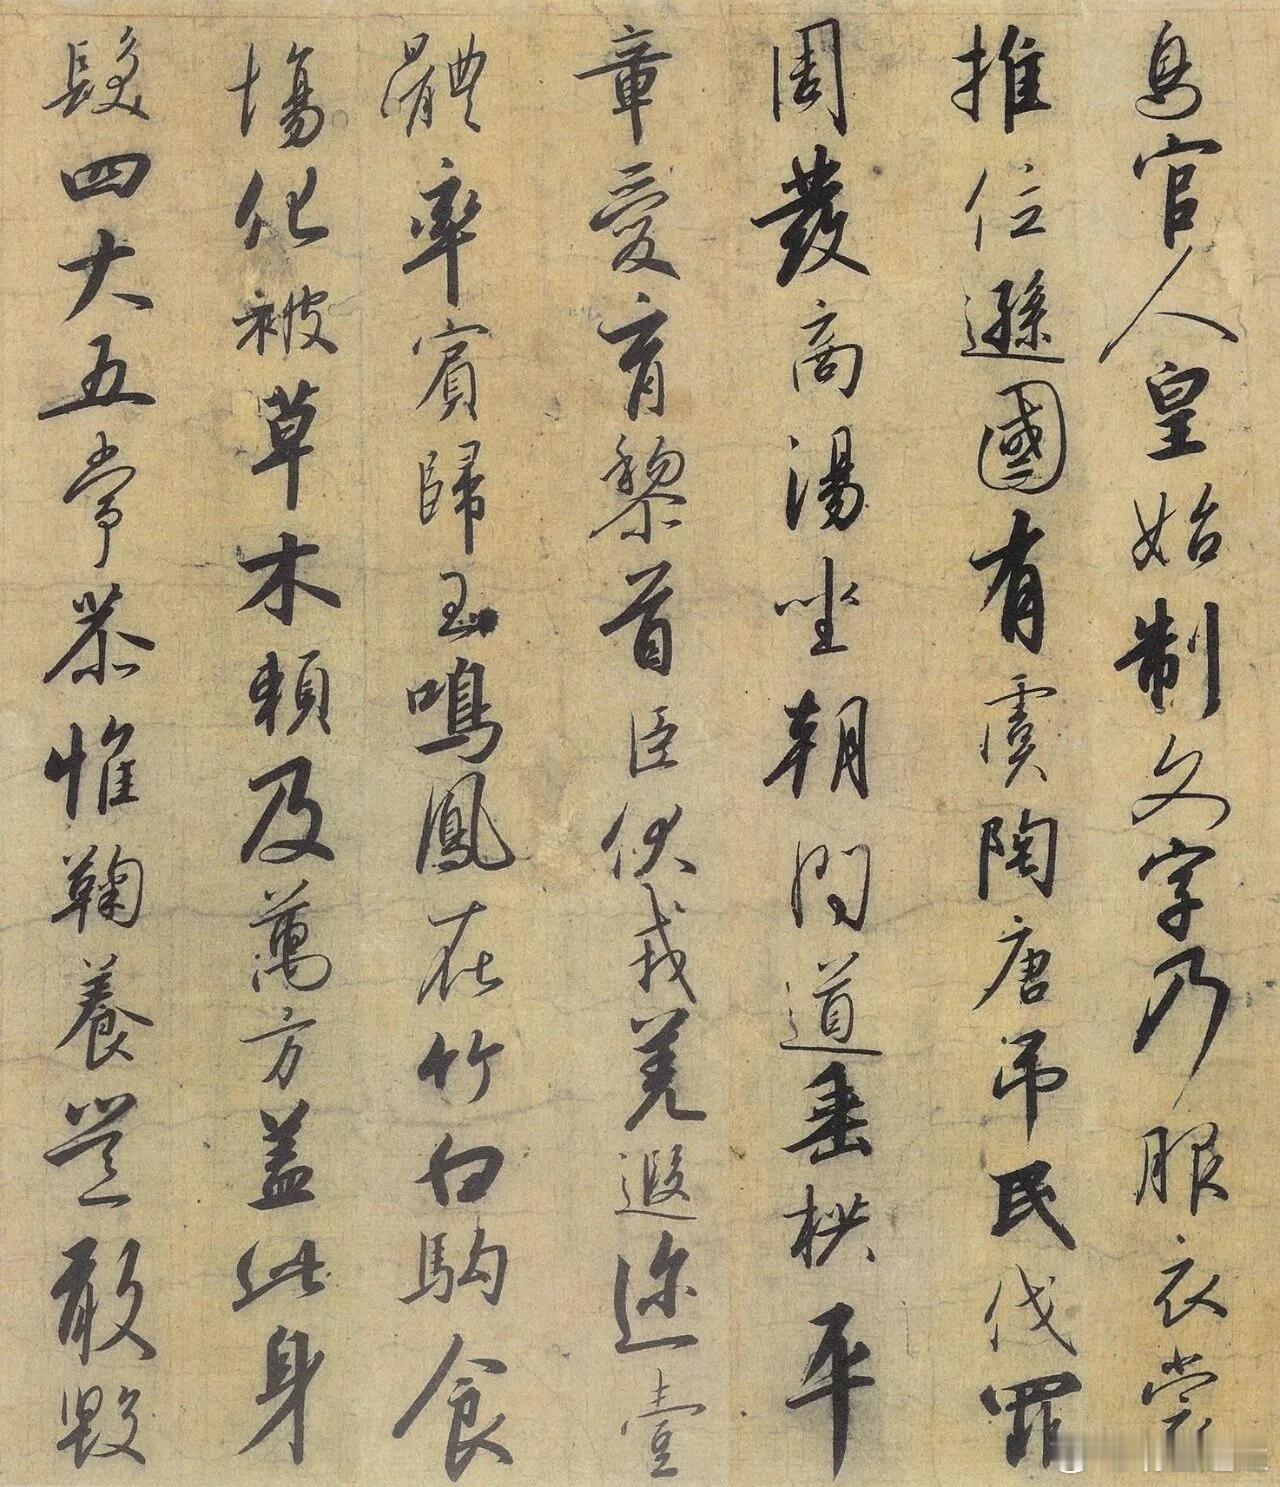 鳥官人皇始制文字乃服衣裳
推位遜國有虞陶唐弔民伐罪
周發商湯坐朝問道垂拱平
章愛育黎首臣伏戎羌遐迩壹
體率賓歸王鳴鳳在竹白駒食
場化被草木賴及萬方蓋此身
髮四大五常恭惟鞠養豈敢毀